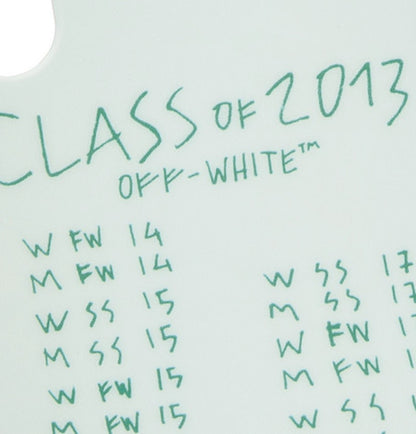 CLASS OF 2013
OFF-WHITE™
W FW 14
M FW 14
W SS 15
M SS 15
W FW 15
M FW 15
W SS 17
M SS 17
W FW 17
M FW 1
W SS 1